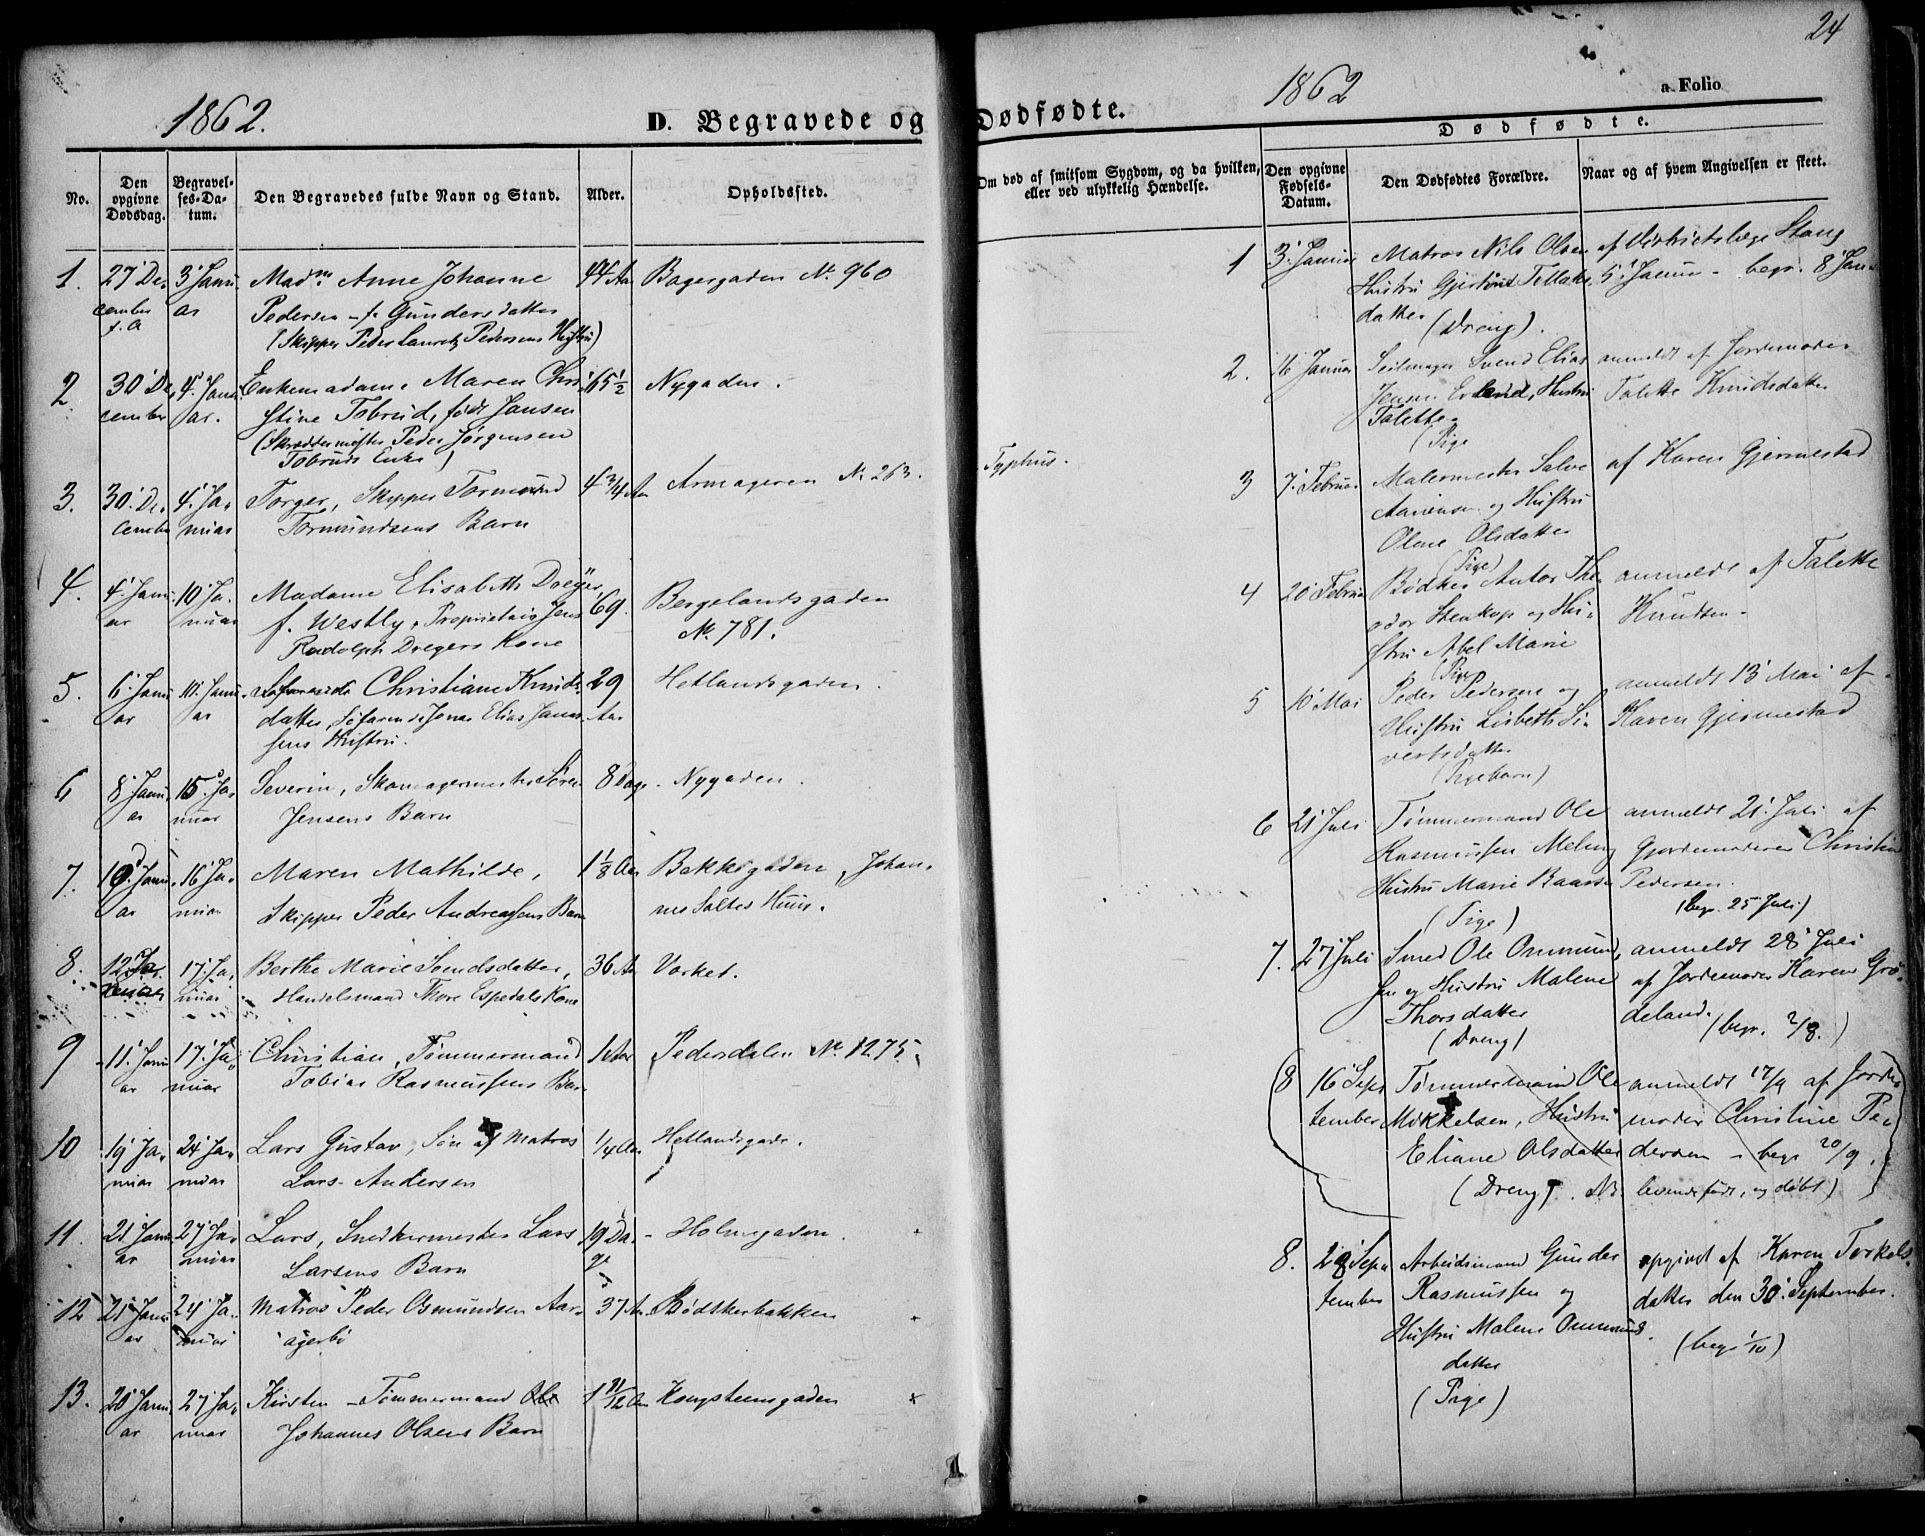 1862.
D. Begravede og
No.
Den opgivne Dødsdag.
Begravelses-Datum.
Den Begravedes fulde Navn og Stand.
Alder.
Opholdssted.
1. 27' December f. A 3' Januar Madm Anne Johanne 44 Aar Bagergaden No. 960
Pedersen - f. Gundersdatter
(Skipper Peder Lauretz Pedersens Hustru)
2. 30' December 4' Januar. Enkemadame Maren Chri 65½ Nygaden.
stine Tobrud, født Jansen
(Skreddermester Peder Jørgensen
Tobruds Enke)
3. 30' December 4' Januar Torger, Skipper Tormund 4¾ Aar Armageren No 263.
Tormundsens Barn
4. 4' Januar 10' Januar Madame Elisabeth Dreyer 69. Bergelandsgaden
f. Westly, Proprietair Jens No. 781.
Rudolph Dreyers Kone
5. 6' Januar 10' Januar Christiane Knuds 29 Aar Hetlandsgaden.
datter, Søfarende Jonas Elias Jonas
sens Hustru.
6 8' Januar 15' Januar Severin, Skomagermester Søren 8 Dage - Nygaden.
Jensens Barn
7. 10' Januar 16' Januar Maren Mathilde, 1⅛ Aar Bakkegaden, Johan
Skipper Peder Andreassens Barn nes Saltes Huus.
8. 12' Januar 17' Januar Berthe Marie Svendsdatter, 36 Aar Verket.
Handelsmand Thore Espedals Kone
9 11' Januar 17' Januar Christian, Tømmermand 1 Aar Pedersdalen No. 1275.
Tobias Rasmussens Barn
10 19' Januar 24' Januar Lars Gustav, Søn af Matros ¼ Aar Hetlandsgade.
Lars Andersen
11. 21' Januar 27' Januar Lars, Snedkermester Lars 19 Dage - Holmegaden.
Larsens Barn
12 21' Januar 24' Januar Matros Peder Osmundsen Aar 37 Aar Bødkerbakken
agerbø
13. 20' Januar 27' Januar Kirsten - Tømmermand Ole 1 11/12 Aar Kongsteensgaden
Johannes Olsens Barn
24
1862
a. Folio
Dødfødte.
Om død af smitsom Sygdom, og da hvilken,
eller ved ulykkelig Hændelse.
Dødfødte.
Den opgivne Fødsels-Datum.
Den Dødfødtes Forældre.
Naar og af hvem Angivelsen er skeet.
Typhus.
1 3' Januar Matros Nils Olsen af Distriktslæge Stang
Hustru Gjertine Tellaks 5' Januar - begr. 8' Jan
datter
(Dreng).
2. 16 Januar Seilmager Svend Elias anmeldt af Jordemoder
Jensen Hustru Talette Knudsdatter
Talette.
(Pige
3 7' Februar Malermester Salve af Karen Gjermestad
og Hustru
Olene Olsdatter
(Pige)
4 20' Februar Bødker Anton The anmeldt af Talette
odor Stenkop og Hu Knudsen.
stru Abel Marie
(Pige
5 10' Mai Peder Pedersen og anmeldt 13' Mai af
Hustru Lisbeth Si Karen Gjermestad
vertsdatter
(Pigebarn)
6 21' Juli Tømmermand Ole anmeldt 21' Juli af
Rasmussen Meling Gjordemoder Christine
Hustru Marie Baarsen Pedersen.
(Pige) (begr. 25' Juli)
7. 27' Juli Smed Ole Ommund anmeldt 28' Juli
sen og Hustru Malene af Jordemoder Karen Grø
Thorsdatter deland.
(Dreng) (begr. 2/8.)
8 16' September Tømmermand Ole anmeldt 17/9 af Jorde
Mikkelsen, Hustru moder Christine Pe
Eliane Olsdatter dersen - begr 20/9.
(Dreng). Nb. levendefødt, og døbt)
8. 28' September Arbeidsmand Gunder opgivet af Karen Torkels
Rasmussen og datter den 30' September.
Hustru Malene Ommunds (begr 1/10)
datter
(Pige)